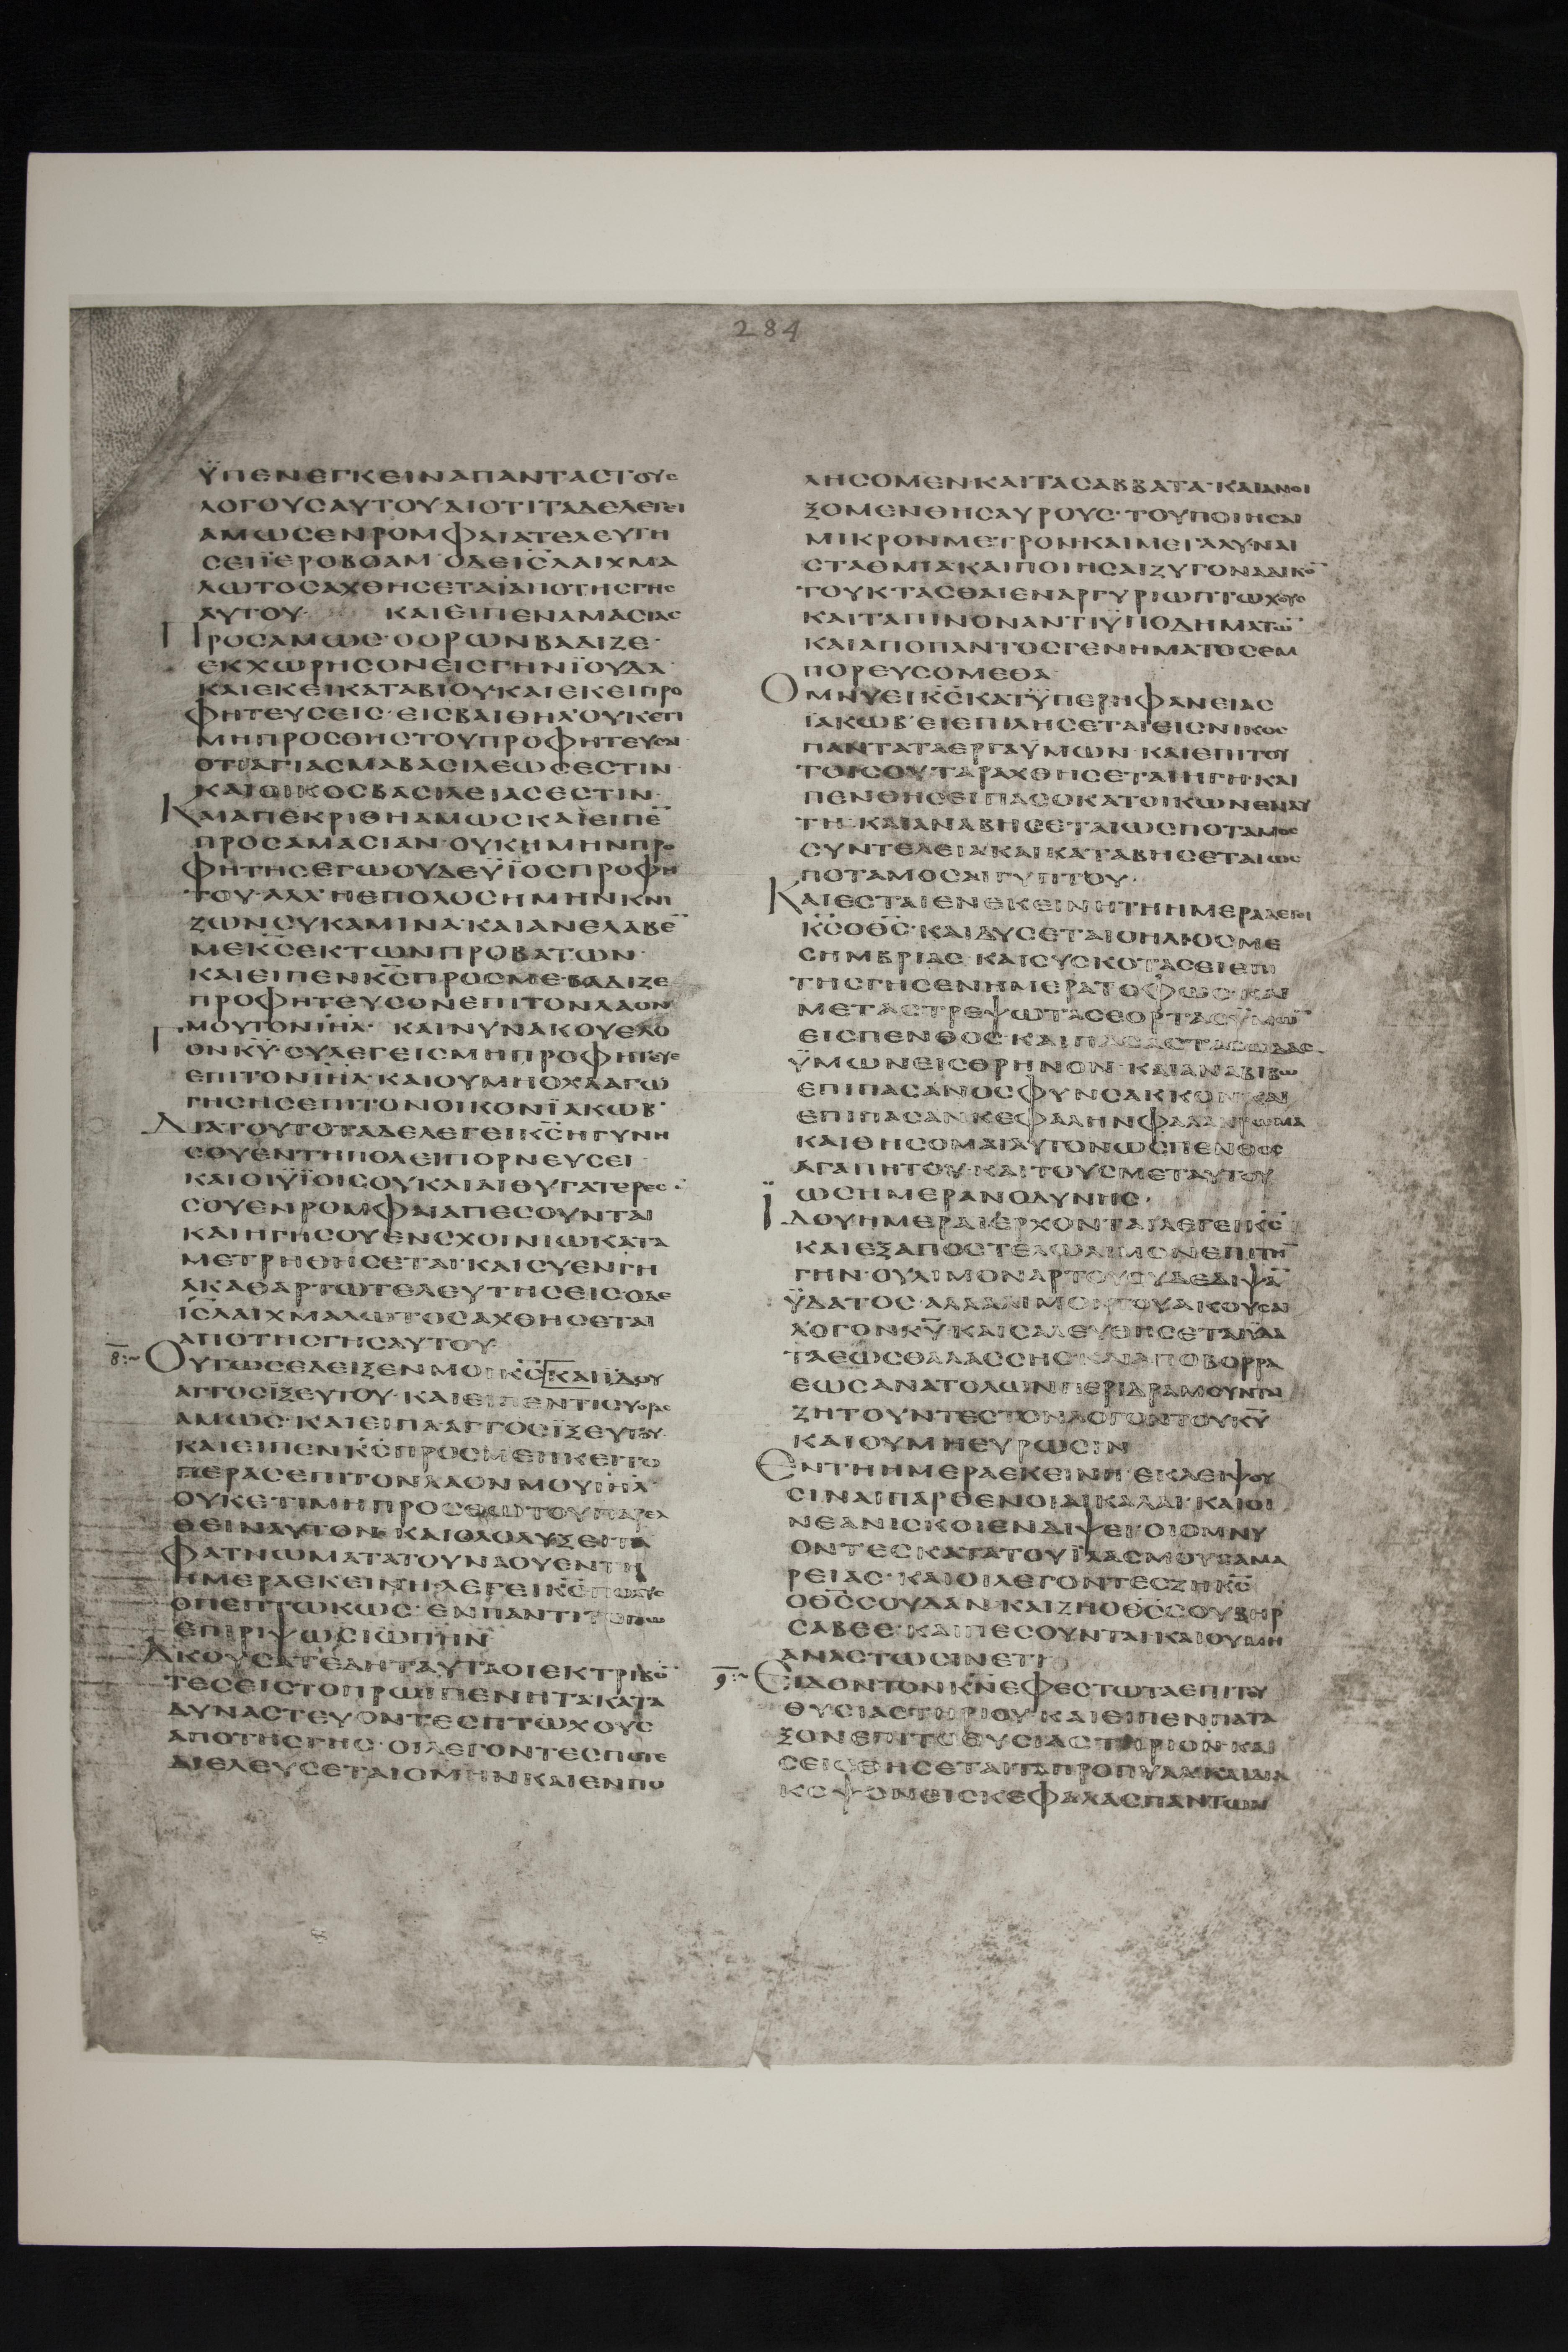 284
ΫΠΕΝΕΓΚΕΙΝΑΠΑΝΤΑΣΤΟΥΣ
ΛΟΓΟΥΣΑΥΤΟΥΔΙΟΤΙΤΑΔΕΛΕΓΕΙ
ΑΜΩΣΕΝΡΟΜΦΑΙΑΤΕΛΕΥΤΗ
ΣΕΙΪΕΡΟΒΟΑΜ ΟΔΕΙΣΛΑΙΧΜΑ
ΛΩΤΟΣΑΧΘΗΣΕΤΑΙΑΠΟΤΗΣΓΗΣ
ΑΥΤΟΥ· ΚΑΙΕΙΠΕΝΑΜΑΣΙΑΣ
ΠΡΟΣΑΜΩΣ·ΟΟΡΩΝΒΑΔΙΖΕ·
ΕΚΧΩΡΗΣΟΝΕΙΣΓΗΝΪΟΥΔΑ·
ΚΑΙΕΚΕΙΚΑΤΑΒΙΟΥΚΑΙΕΚΕΙΠΡΟ
ΦΗΤΕΥΣΕΙΣ·ΕΙΣΒΑΙΘΗΛΟΥΚΕΤΙ
ΜΗΠΡΟΣΘΗΣΤΟΥΠΡΟΦΗΤΕΥΣΑΙ
ΟΤΙΑΓΙΑΣΜΑΒΑΣΙΛΕΩΣΕΣΤΙΝ·
ΚΑΙΟΙΚΟΣΒΑΣΙΛΕΙΑΣΕΣΤΙΝ·
ΚΑΙΑΠΕΚΡΙΘΗΑΜΩΣΚΑΙΕΙΠΕ̅
ΠΡΟΣΑΜΑΣΙΑΝ·ΟΥΚΗΜΗΝΠΡΟ
ΦΗΤΗΣΕΓΩΟΥΔΕΫΪΟΣΠΡΟΦΗ
ΤΟΥ·ΑΛΛΗΕΠΟΛΟΣΗΜΗΝΚΝΙ
ΖΩΝΣΥΚΑΜΙΝΑ·ΚΑΙΑΝΕΛΑΒΕ̅
ΜΕΚ̅Σ̅ΕΚΤΩΝΠΡΟΒΑΤΩΝ·
ΚΑΙΕΙΠΕΝΚ̅Σ̅ΠΡΟΣΜΕ·ΒΑΔΙΖΕ
ΠΡΟΦΗΤΕΥΣΟΝΕΠΙΤΟΝΛΑΟΝ
ΜΟΥΤΟΝΙ̅Η̅Λ̅· ΚΑΙΝΥΝΑΚΟΥΕΛΟ
ΓΟΝΚ̅Υ̅·ΣΥΛΕΓΕΙΣΜΗΠΡΟΦΗΤΕΥΕ
ΕΠΙΤΟΝΙ̅Η̅Λ̅·ΚΑΙΟΥΜΗΟΧΛΑΓΩ
ΓΗΣΗΣΕΠΙΤΟΝΟΙΚΟΝΪΑΚΩΒ·
ΔΙΑΤΟΥΤΟΤΑΔΕΛΕΓΕΙΚ̅Σ̅ΗΓΥΝΗ
ΣΟΥΕΝΤΗΠΟΛΕΙΠΟΡΝΕΥΣΕΙ·
ΚΑΙΟΙΫΪΟΙΣΟΥΚΑΙΑΙΘΥΓΑΤΕΡΕΣ·
ΣΟΥΕΝΡΟΜΦΑΙΑΠΕΣΟΥΝΤΑΙ
ΚΑΙΗΓΗΣΟΥΕΝΣΧΟΙΝΙΩΚΑΤΑ
ΜΕΤΡΗΘΗΣΕΤΑΙ·ΚΑΙΣΥΕΝΓΗ
ΑΚΑΘΑΡΤΩΤΕΛΕΥΤΗΣΕΙΣ·ΟΔΕ
Ι̅Σ̅Λ̅ΑΙΧΜΑΛΩΤΟΣΑΧΘΗΣΕΤΑΙ
ΑΠΟΤΗΣΓΗΣΑΥΤΟΥ·
Η̅:~ΟΥΤΩΣΕΔΕΙΞΕΝΜΟΙΚ̅Σ̅ΚΑΙΪΔΟΥ
ΑΓΓΟΣΪΞΕΥΤΟΥ·ΚΑΙΕΙΠΕΝΤΙΣΥΟΡΑΣ
ΑΜΩΣ·ΚΑΙΕΙΠΑ·ΑΓΓΟΣΪΞΕΥΤΟΥ·
ΚΑΙΕΙΠΕΝΚ̅Σ̅ΠΡΟΣΜΕΗΚΕΙΤΟ
ΠΕΡΑΣΕΠΙΤΟΝΛΑΟΝΜΟΥΙ̅Η̅Λ̅
ΟΥΚΕΤΙΜΗΠΡΟΣΘΩΤΟΥΠΑΡΕΛ
ΘΕΙΝΑΥΤΟΝ·ΚΑΙΟΛΟΛΥΞΕΙΤΑ
ΦΑΤΝΩΜΑΤΑΤΟΥΝΑΟΥΕΝΤΗ
ΗΜΕΡΑΕΚΕΙΝΗΛΕΓΕΙΚ̅Σ̅ΠΟΛΥΣ
ΟΠΕΠΤΩΚΩΣ·ΕΝΠΑΝΤΙΤΟΠΩ
ΕΠΙΡΙΨΩΣΙΩΠΗΝ
ΑΚΟΥΣΑΤΕΔΗΤΑΥΤΑΟΙΕΚΤΡΙΒΟ̅
ΤΕΣΕΙΣΤΟΠΡΩΙΠΕΝΗΤΑΚΑΤΑ
ΔΥΝΑΣΤΕΥΟΝΤΕΣΠΤΩΧΟΥΣ
ΑΠΟΤΗΣΓΗΣ·ΟΙΛΕΓΟΝΤΕΣΠΟΤΕ
ΔΙΕΛΕΥΣΕΤΑΙΟΜΗΝΚΑΙΕΝΠΟ
ΛΗΣΟΜΕΝ·ΚΑΙΤΑΣΑΒΒΑΤΑ·ΚΑΙΑΝΟΙ
ΞΟΜΕΝΘΗΣΑΥΡΟΥΣ·ΤΟΥΠΟΙΗΣΑΙ
ΜΙΚΡΟΝΜΕΤΡΟΝΚΑΙΜΕΓΑΛΥΝΑΙ
ΣΤΑΘΜΙΑΚΑΙΠΟΙΗΣΑΙΖΥΓΟΝΑΔΙΚΟ̅
ΤΟΥΚΤΑΣΘΑΙΕΝΑΡΓΥΡΙΩΠΤΩΧΟΥΣ
ΚΑΙΤΑΠΙΝΟΝΑΝΤΙΫΠΟΔΗΜΑΤΩ̅
ΚΑΙΑΠΟΠΑΝΤΟΣΓΕΝΗΜΑΤΟΣΕΜ
ΠΟΡΕΥΣΟΜΕΘΑ
ΟΜΝΥΕΙΚ̅Σ̅ΚΑΤΫΠΕΡΗΦΑΝΕΙΑΣ
ΪΑΚΩΒ·ΕΙΕΠΙΛΗΣΕΤΑΙΕΙΣΝΙΚΟΣ
ΠΑΝΤΑΤΑΕΡΓΑΫΜΩΝ·ΚΑΙΕΠΙΤΟΥ
ΤΟΙΣΟΥΤΑΡΑΧΘΗΣΕΤΑΙΗΓΗ·ΚΑΙ
ΠΕΝΘΗΣΕΙΠΑΣΟΚΑΤΟΙΚΩΝΕΝΑΥ
ΤΗ·ΚΑΙΑΝΑΒΗΣΕΤΑΙΩΣΠΟΤΑΜΟΣ
ΣΥΝΤΕΛΕΙΑ·ΚΑΙΚΑΤΑΒΗΣΕΤΑΙΩΣ
ΠΟΤΑΜΟΣΑΙΓΥΠΤΟΥ·
ΚΑΙΕΣΤΑΙΕΝΕΚΕΙΝΗΤΗΗΜΕΡΑΛΕΓΕΙ
Κ̅Σ̅ΟΘ̅Σ̅·ΚΑΙΔΥΣΕΤΑΙΟΗΛΙΟΣΜΕ
ΣΗΜΒΡΙΑΣ·ΚΑΙΣΥΣΚΟΤΑΣΕΙΕΠΙ
ΤΗΣΓΗΣΕΝΗΜΕΡΑΤΟΦΩΣ·ΚΑΙ
ΜΕΤΑΣΤΡΕΨΩΤΑΣΕΟΡΤΑΣΫΜΩ̅
ΕΙΣΠΕΝΘΟΣ·ΚΑΙΠΑΣΑΣΤΑΣΩΔΑΣ
ΫΜΩΝΕΙΣΘΡΗΝΟΝ·ΚΑΙΑΝΑΒΙΒΩ
ΕΠΙΠΑΣΑΝΟΣΦΥΝΣΑΚΚΟΝ·ΚΑΙ
ΕΠΙΠΑΣΑΝΚΕΦΑΛΗΝΦΑΛΑΚΡΩΜΑ
ΚΑΙΘΗΣΟΜΑΙΑΥΤΟΝΩΣΠΕΝΘΟΣ
ΑΓΑΠΗΤΟΥ·ΚΑΙΤΟΥΣΜΕΤΑΥΤΟΥ
ΩΣΗΜΕΡΑΝΟΔΥΝΗΣ·
ΪΔΟΥΗΜΕΡΑΙΕΡΧΟΝΤΑΙΛΕΓΕΙΚ̅Σ̅
ΚΑΙΕΞΑΠΟΣΤΕΛΩΛΙΜΟΝΕΠΙΤΗ̅
ΓΗΝ·ΟΥΛΙΜΟΝΑΡΤΟΥΟΥΔΕΔΙΨΑ̅
ΫΔΑΤΟΣ·ΑΛΛΑΛΙΜΟΝΤΟΥΑΚΟΥΣΑΙ
ΛΟΓΟΝΚ̅Υ̅·ΚΑΙΣΑΛΕΥΘΗΣΕΤΑΙΫΔΑ
ΤΑΕΩΣΘΑΛΑΣΣΗΣ·ΚΑΙΑΠΟΒΟΡΡΑ
ΕΩΣΑΝΑΤΟΛΩΝΠΕΡΙΔΡΑΜΟΥΝΤΑΙ
ΖΗΤΟΥΝΤΕΣΤΟΝΛΟΓΟΝΤΟΥΚ̅Υ̅
ΚΑΙΟΥΜΗΕΥΡΩΣΙΝ
ΕΝΤΗΗΜΕΡΑΕΚΕΙΝΗ·ΕΚΛΕΙΨΟΥ
ΣΙΝΑΙΠΑΡΘΕΝΟΙΑΙΚΑΛΑΙ·ΚΑΙΟΙ
ΝΕΑΝΙΣΚΟΙΕΝΔΙΨΕΙΟΙΟΜΝΥ
ΟΝΤΕΣΚΑΤΑΤΟΥΪΛΑΣΜΟΥΣΑΜΑ
ΡΕΙΑΣ·ΚΑΙΟΙΛΕΓΟΝΤΕΣΖΗΚ̅Σ̅
ΟΘ̅Σ̅ΣΟΥΔΑΝ·ΚΑΙΖΗΟΘ̅Σ̅ΣΟΥΒΗΡ
ΣΑΒΕΕ·ΚΑΙΠΕΣΟΥΝΤΑΙΚΑΙΟΥΜΗ
ΑΝΑΣΤΩΣΙΝΕΤΙ
Θ̅:~ΕΙΔΟΝΤΟΝΚ̅Ν̅ΕΦΕΣΤΩΤΑΕΠΙΤΟΥ
ΘΥΣΙΑΣΤΗΡΙΟΥ·ΚΑΙΕΙΠΕΝΠΑΤΑ
ΞΟΝΕΠΙΤΟΘΥΣΙΑΣΤΗΡΙΟΝ·ΚΑΙ
ΣΕΙΣΘΗΣΕΤΑΙΤΑΠΡΟΠΥΛΑΚΑΙΔΙΑ
ΚΟΨΟΝΕΙΣΚΕΦΑΛΑΣΠΑΝΤΩΝ